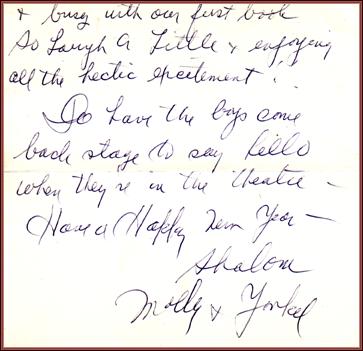 & busy with our first book
So Laugh A Little & enjoying
all the hectic excitement!
Do have the boys come
back stage to say hello
when they're in the theatre –
Have a Happy New Year –
Shalom
Molly & Yankel